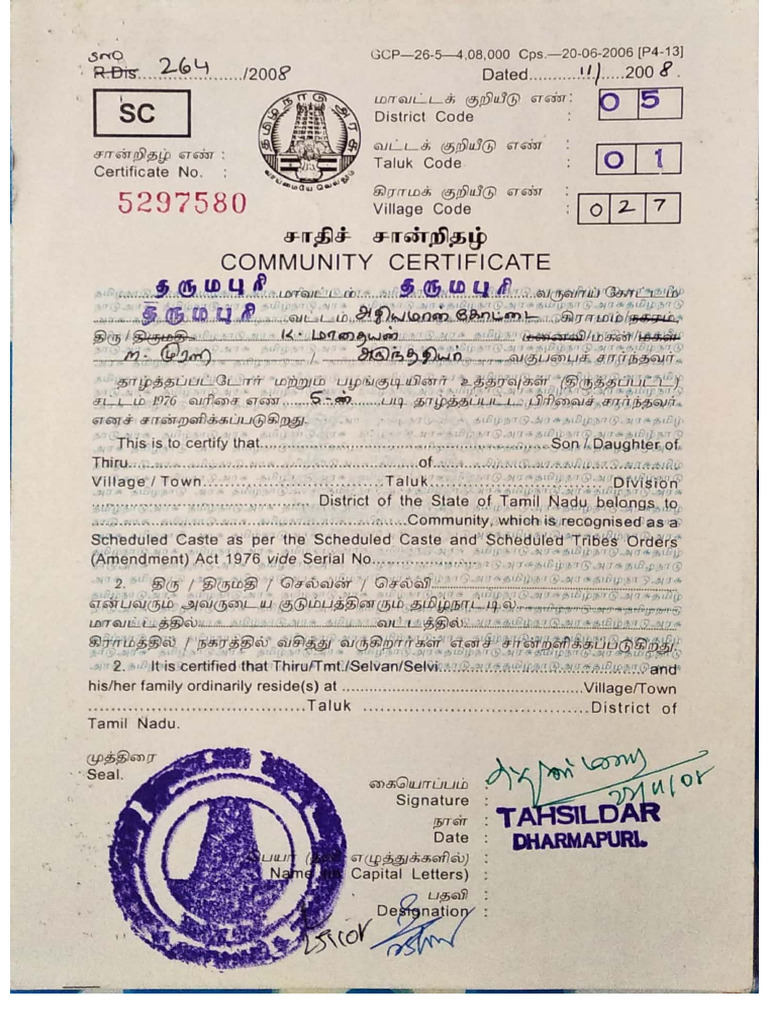 GCP—26-5—4,08,000 Cps.—20-06-2006 [P4-13]
SNO
R.Dis. 264 /2008
Dated 11/ 2008.
SC
தமிழ்நாடு அரசு
வாய்மையே வெல்லும்
மாவட்டக் குறியீடு எண் :
District Code : 05
வட்டக் குறியீடு எண் :
Taluk Code : 01
கிராமக் குறியீடு எண் :
Village Code : 027
சான்றிதழ் எண் :
Certificate No. :
5297580
சாதிச் சான்றிதழ்
COMMUNITY CERTIFICATE
தருமபுரி மாவட்டம் தருமபுரி வருவாய் கோட்டம்
தருமபுரி வட்டம் அதியமான் கோட்டை கிராமம்/நகரம்,
திரு/திருமதி K. மாதையன் மனைவி/மகன்/மகள்
M. முரளி / அருந்ததியர் வகுப்பைச் சார்ந்தவர்
தாழ்த்தப்பட்டோர் மற்றும் பழங்குடியினர் உத்தரவுகள் (திருத்தப்பட்ட)
சட்டம் 1976 வரிசை எண் 5-ன் படி தாழ்த்தப்பட்ட பிரிவைச் சார்ந்தவர்
எனச் சான்றளிக்கப்படுகிறது.
This is to certify that Son / Daughter of
Thiru of
Village / Town Taluk Division
District of the State of Tamil Nadu belongs to
Community, which is recognised as a
Scheduled Caste as per the Scheduled Caste and Scheduled Tribes Orders
(Amendment) Act 1976 vide Serial No.
2. திரு / திருமதி / செல்வன் / செல்வி
என்பவரும் அவருடைய குடும்பத்தினரும் தமிழ்நாட்டில்
மாவட்டத்தில் வட்டத்தில்
கிராமத்தில் / நகரத்தில் வசித்து வருகிறார்கள் எனச் சான்றளிக்கப்படுகிறது.
2. It is certified that Thiru/Tmt./Selvan/Selvi and
his/her family ordinarily reside(s) at Village/Town
Taluk District of
Tamil Nadu.
முத்திரை
Seal.
கையொப்பம் :
Signature :
TAHSILDAR
DHARMAPURI.
நாள் :
Date :
பெயர் (தனி எழுத்துக்களில்) :
Name (in Capital Letters) :
பதவி :
Designation :